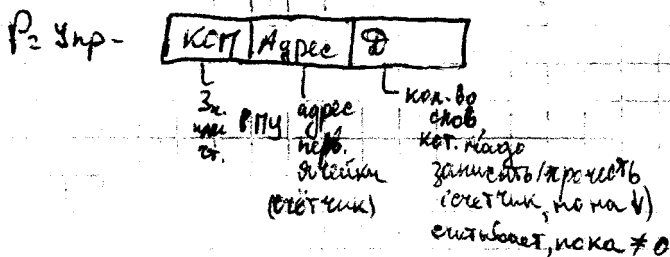 Рг Упр -
КОП Адрес D
Зп. или чт.
РПУ
адрес перв. ячейки (счётчик)
кол. во слов кот. надо записать/прочесть (счетчик, но на ↓) считывает, пока ≠ 0